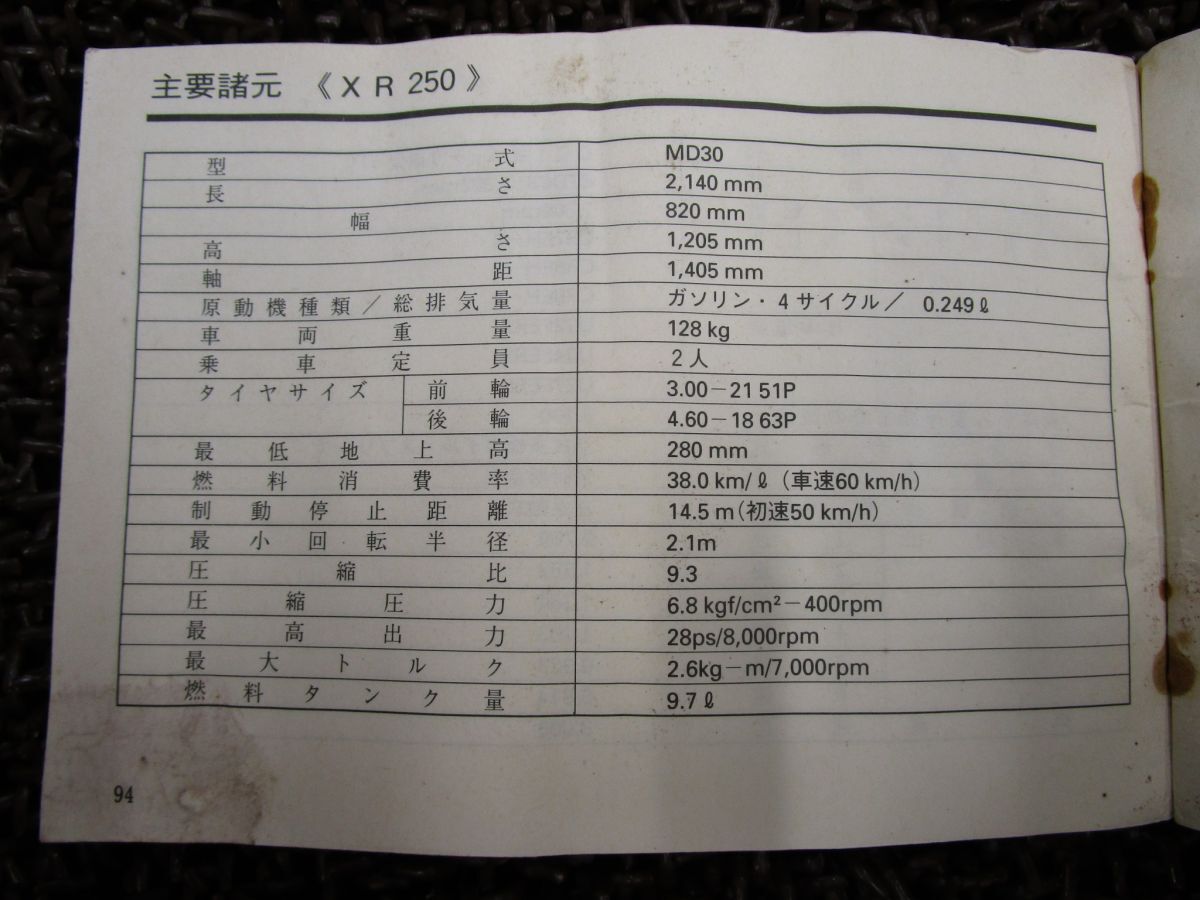 主要諸元 《XR250》
型式 MD30
長さ 2,140 mm
幅 820 mm
高さ 1,205 mm
軸距 1,405 mm
原動機種類/総排気量 ガソリン・4サイクル/ 0.249ℓ
車両重量 128 kg
乗車定員 2人
タイヤサイズ 前輪 3.00−21 51P
後輪 4.60−18 63P
最低地上高 280 mm
燃料消費率 38.0 km/ℓ(車速60 km/h)
制動停止距離 14.5 m(初速50 km/h)
最小回転半径 2.1m
圧縮比 9.3
圧縮圧力 6.8 kgf/cm²−400rpm
最高出力 28ps/8,000rpm
最大トルク 2.6kg−m/7,000rpm
燃料タンク量 9.7ℓ
94